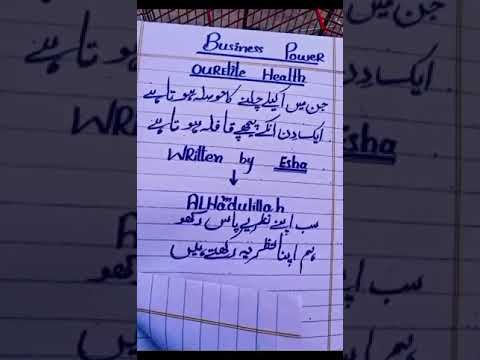 Business Power
OURElite Health
جن میں اکیلے چلنے کا حوصلہ ہوتا ہے
ایک دن انکے پیچھے قافلہ ہوتا ہے
WRitten by Esha
↓
ALHamdulillah
سب اپنے نظریے پاس رکھو
ہم اپنا نظریہ رکھتے ہیں